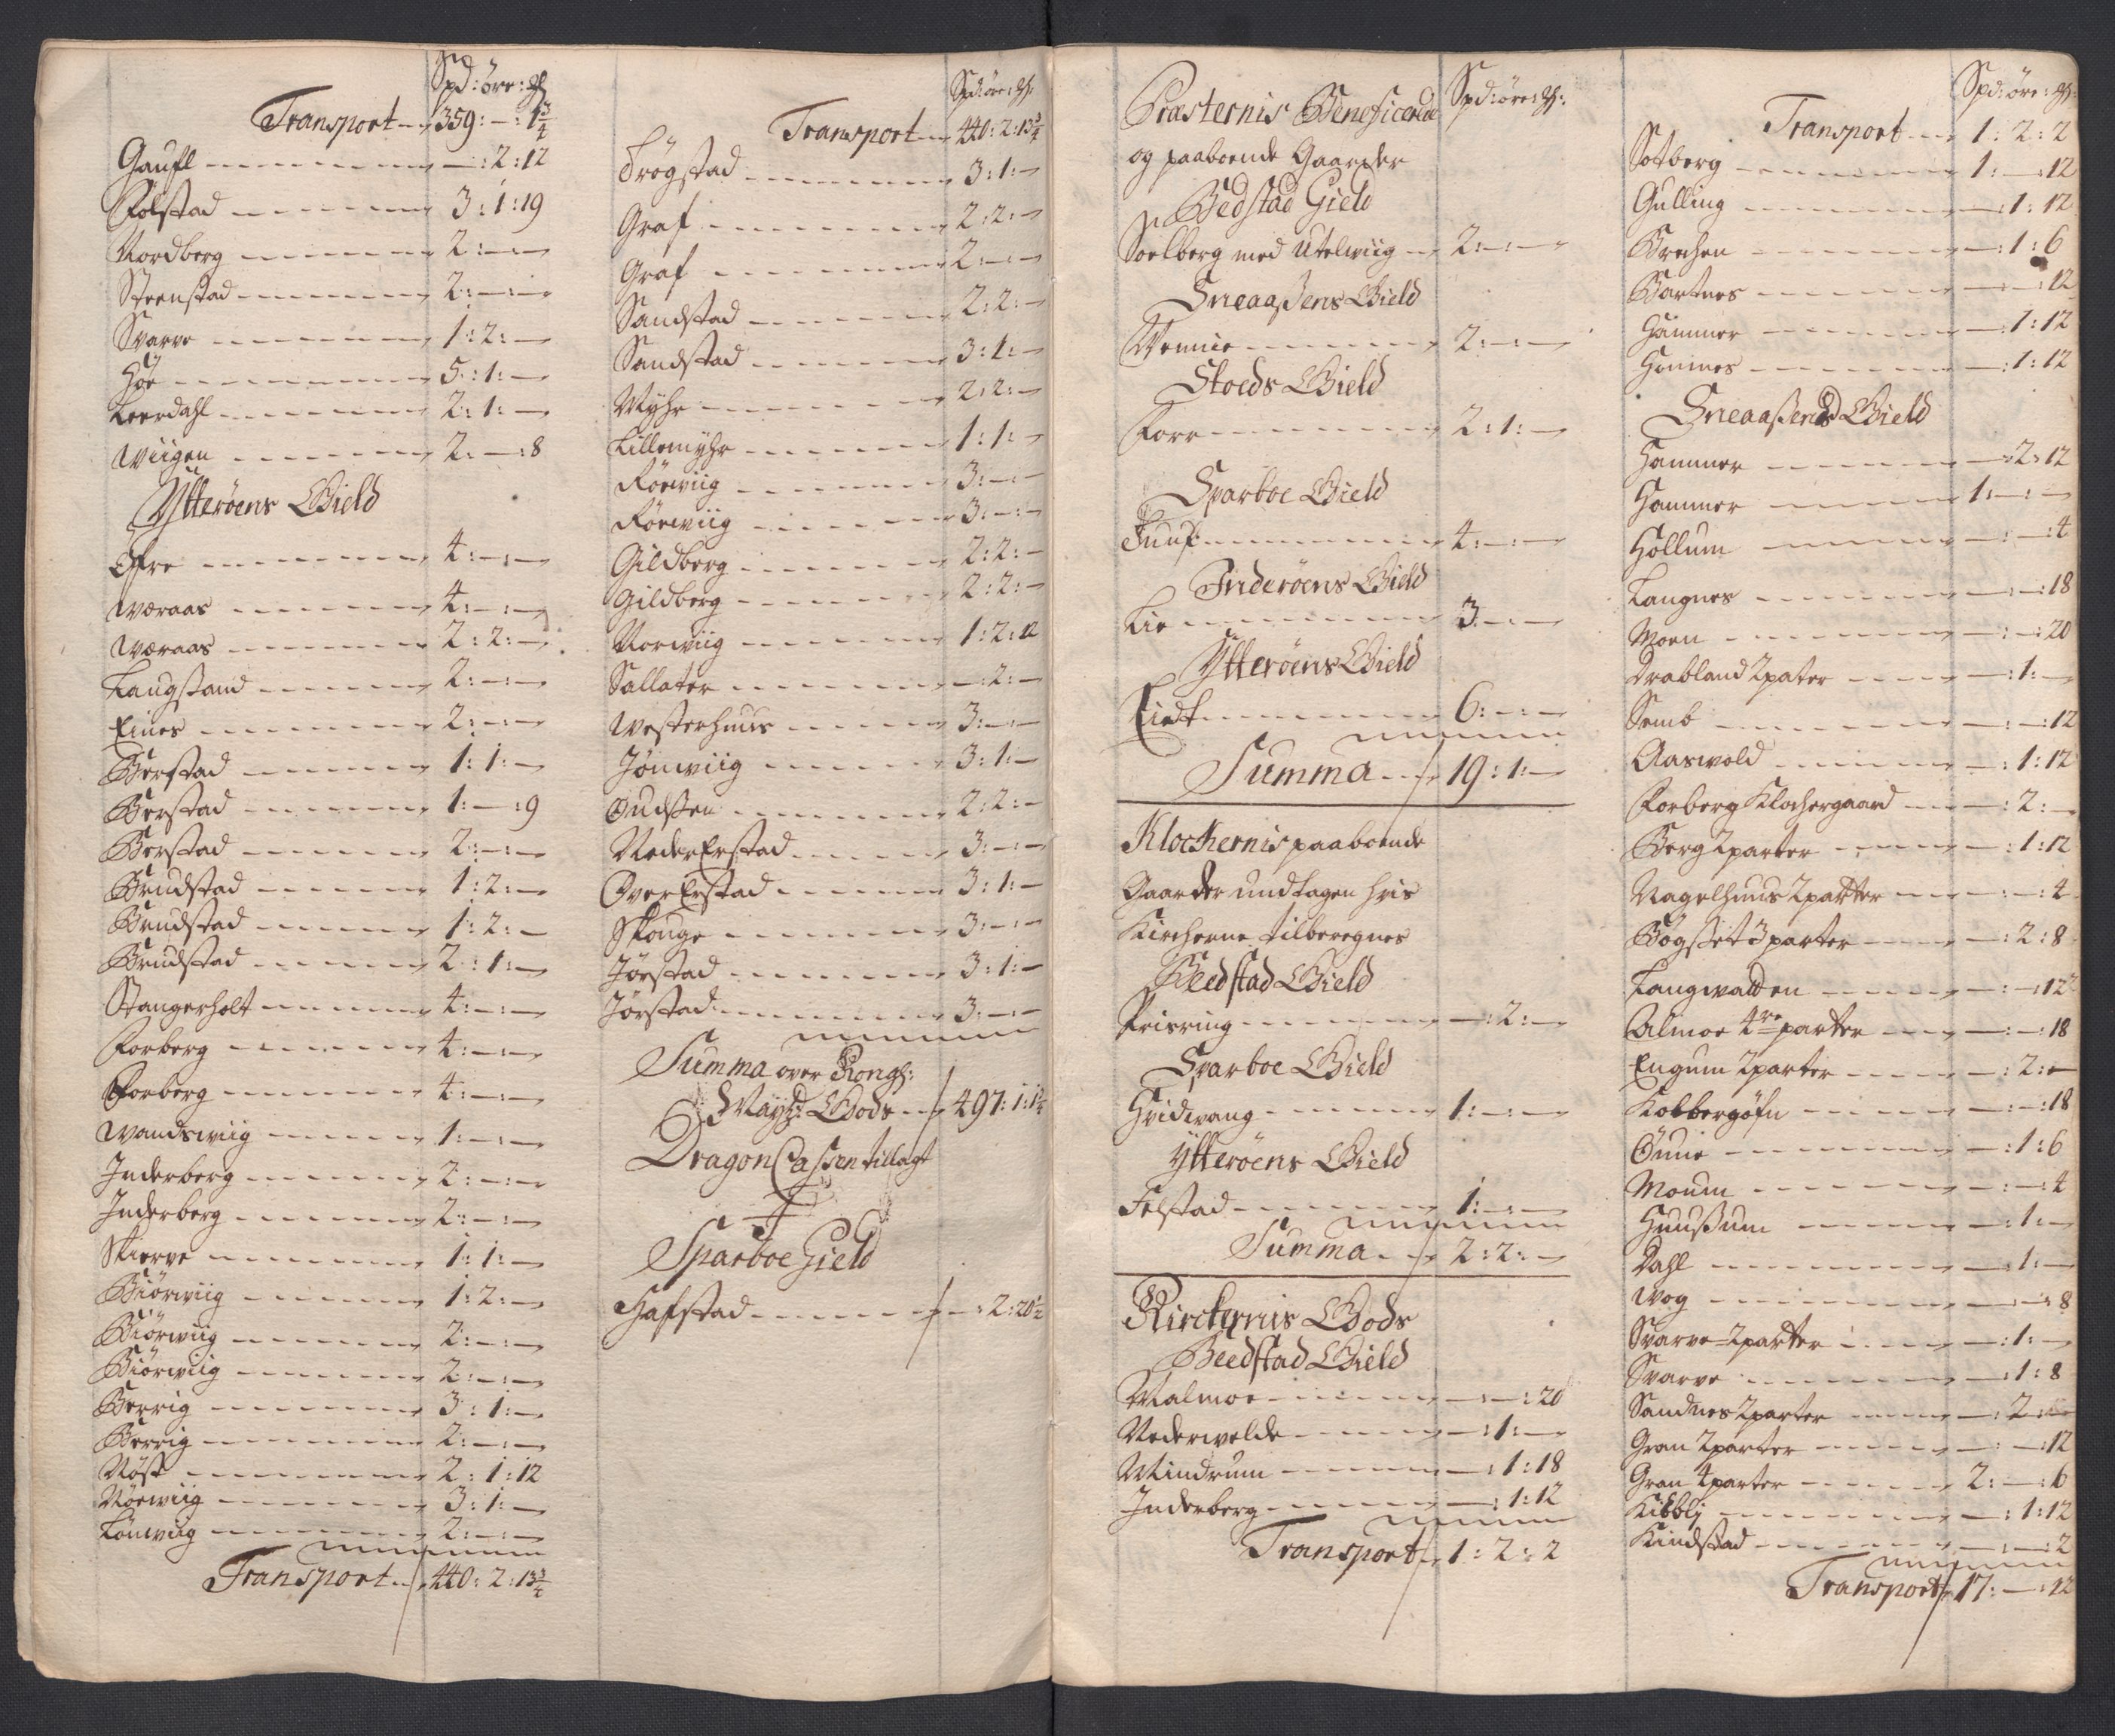 Spd: öre: ℔
Transport - 359: - : 1¾
Gaufl - : 2 : 12
Følstad 3 : 1 : 19
Nordberg 2 : - : -
Steenstad 2 : - : -
Svarve 1 : 2 : -
Høe 5 : 1 : -
Leerdahl 2 : 1 : -
Wiigen 2 : - : 8
Ytterøens Gield
Ofre 4 : - : -
Wæraas 4 : - : -
Wæraas 2 : 2 : -
Langstand 2 : - : -
Eines 2 : - : -
Berstad 1 : 1 : -
Berstad 1 : - : 9
Berstad 2 : - : -
Brudstad 1 : 2 : -
Brudstad 1 : 2 : -
Brudstad 2 : 1 : -
Stangerholt 4 : - : -
Forberg 4 : - : -
Forberg 4 : - : -
Wandswiig 1 : - : -
Inderberg 2 : - : -
Inderberg 2 : - : -
Skierve 1 : 1 : -
Biörwiig 1 : 2 : -
Biörwiig 2 : - : -
Biörwiig 2 : - : -
Berrig 3 : 1 : -
Berrig 2 : - : -
Nöst 2 : 1 : 12
Nörwiig 3 : 1 : -
Lönwiig 2 : - : -
Transport - 440 : 2 : 13¾
Spd: öre: ℔:
Transport 440 : 2 : 13¾
Trögstad 3 : 1 : -
Graf 2 : 2 : -
Graf 2 : - : -
Sandstad 2 : 2 : -
Sandstad 3 : 1 : -
Myhr 2 : 2 : -
Lillemyhr 1 : 1 : -
Röewiig 3 : - : -
Rörwiig 3 : - : -
Gildberg 2 : 2 : -
Gildberg 2 : 2 : -
Norwiig 1 : 2 : 12
Sallater - : 2 : -
Westerhuus 3 : - : -
Jönwiig 3 : 1 : -
Oudssen 2 : 2 : -
Neder Erstad 3 : - : -
Over Erstad 3 : 1 : -
Skouge 3 : - : -
Jörstad 3 : 1 : -
Jörstad 3 : - : -
Summa over Kongl:
Mayts: Gods 497 : 1 : 1¾
Dragon Cassen tillagt
Sparboe Gield
Hafstad - : 2 : 20½
Præsternis Beneficerede Spd: öre: ℔:
og paaboende Gaarder
Bedstad Gield
Soelberg med Utelwiig 2 : - : -
Sneaasens Gield
Wennie 2 : - : -
Stoeds Gield
Forr 2 : 1 : -
Sparboe Gield
Tuuf 4 : - : -
Inderøens Gield
Lie 3 : - : -
Ytterøens Gield
Eidt 6 : - : -
Summa 19 : 1 : -
Klockernis paaboende
Gaarder undtagen hvis
Kircherne tilberegnes
Beedstad Gield
Prisring - : 2 : -
Sparboe Gield
Hvidwang 1 : - : -
Ytterøens Gield
Folstad 1 : - : -
Summa 2 : 2 : -
Kirckernis Gods
Beedstad Gield
Malmoe - : - : 20
Nederwelde - : 1 : -
Mindrum - : 1 : 18
Inderberg - : 1 : 12
Transport 1 : 2 : 2
Spd: öre: ℔:
Transport 1 : 2 : 2
Solberg 1 : - : 12
Gulling - : 1 : 12
Brechen - : 1 : 6
Bartnes - : - : 12
Hammer - : 1 : 12
Hemnes - : 1 : 12
Sneaasens Gield
Hammer - : 2 : 12
Hammer 1 : - : -
Hollum - : - : 4
Langnes - : - : 18
Moen - : - : 20
Drabland 2 pater - : 1 : -
Semb - : - : 12
Aaswold - : 1 : 12
Forberg Klochergaard - : 2 : -
Berg 2 parter - : 1 : 12
Nagelhuus 2 parter - : - : 4
Bögsset 3 parter - : 2 : 8
Langwatten - : - : 12
Almoe 4re parter - : - : 18
Engum 2 parter - : 2 : -
Kobbergöfn - : - : 18
Önnie - : 1 : 6
Moum - : - : 4
Huussum - : 1 : -
Dahl - : 1 : -
Wog - : - : 8
Svarve 2 parter - : 1 : -
Svarve - : 1 : 8
Sandnes 2 parter - : 2 : -
Gran 2 parter - : - : 12
Gran 4 parter 2 : - : 6
Kibbly - : 1 : 12
Kindstad - : - : 2
Transport 17 : - : 12